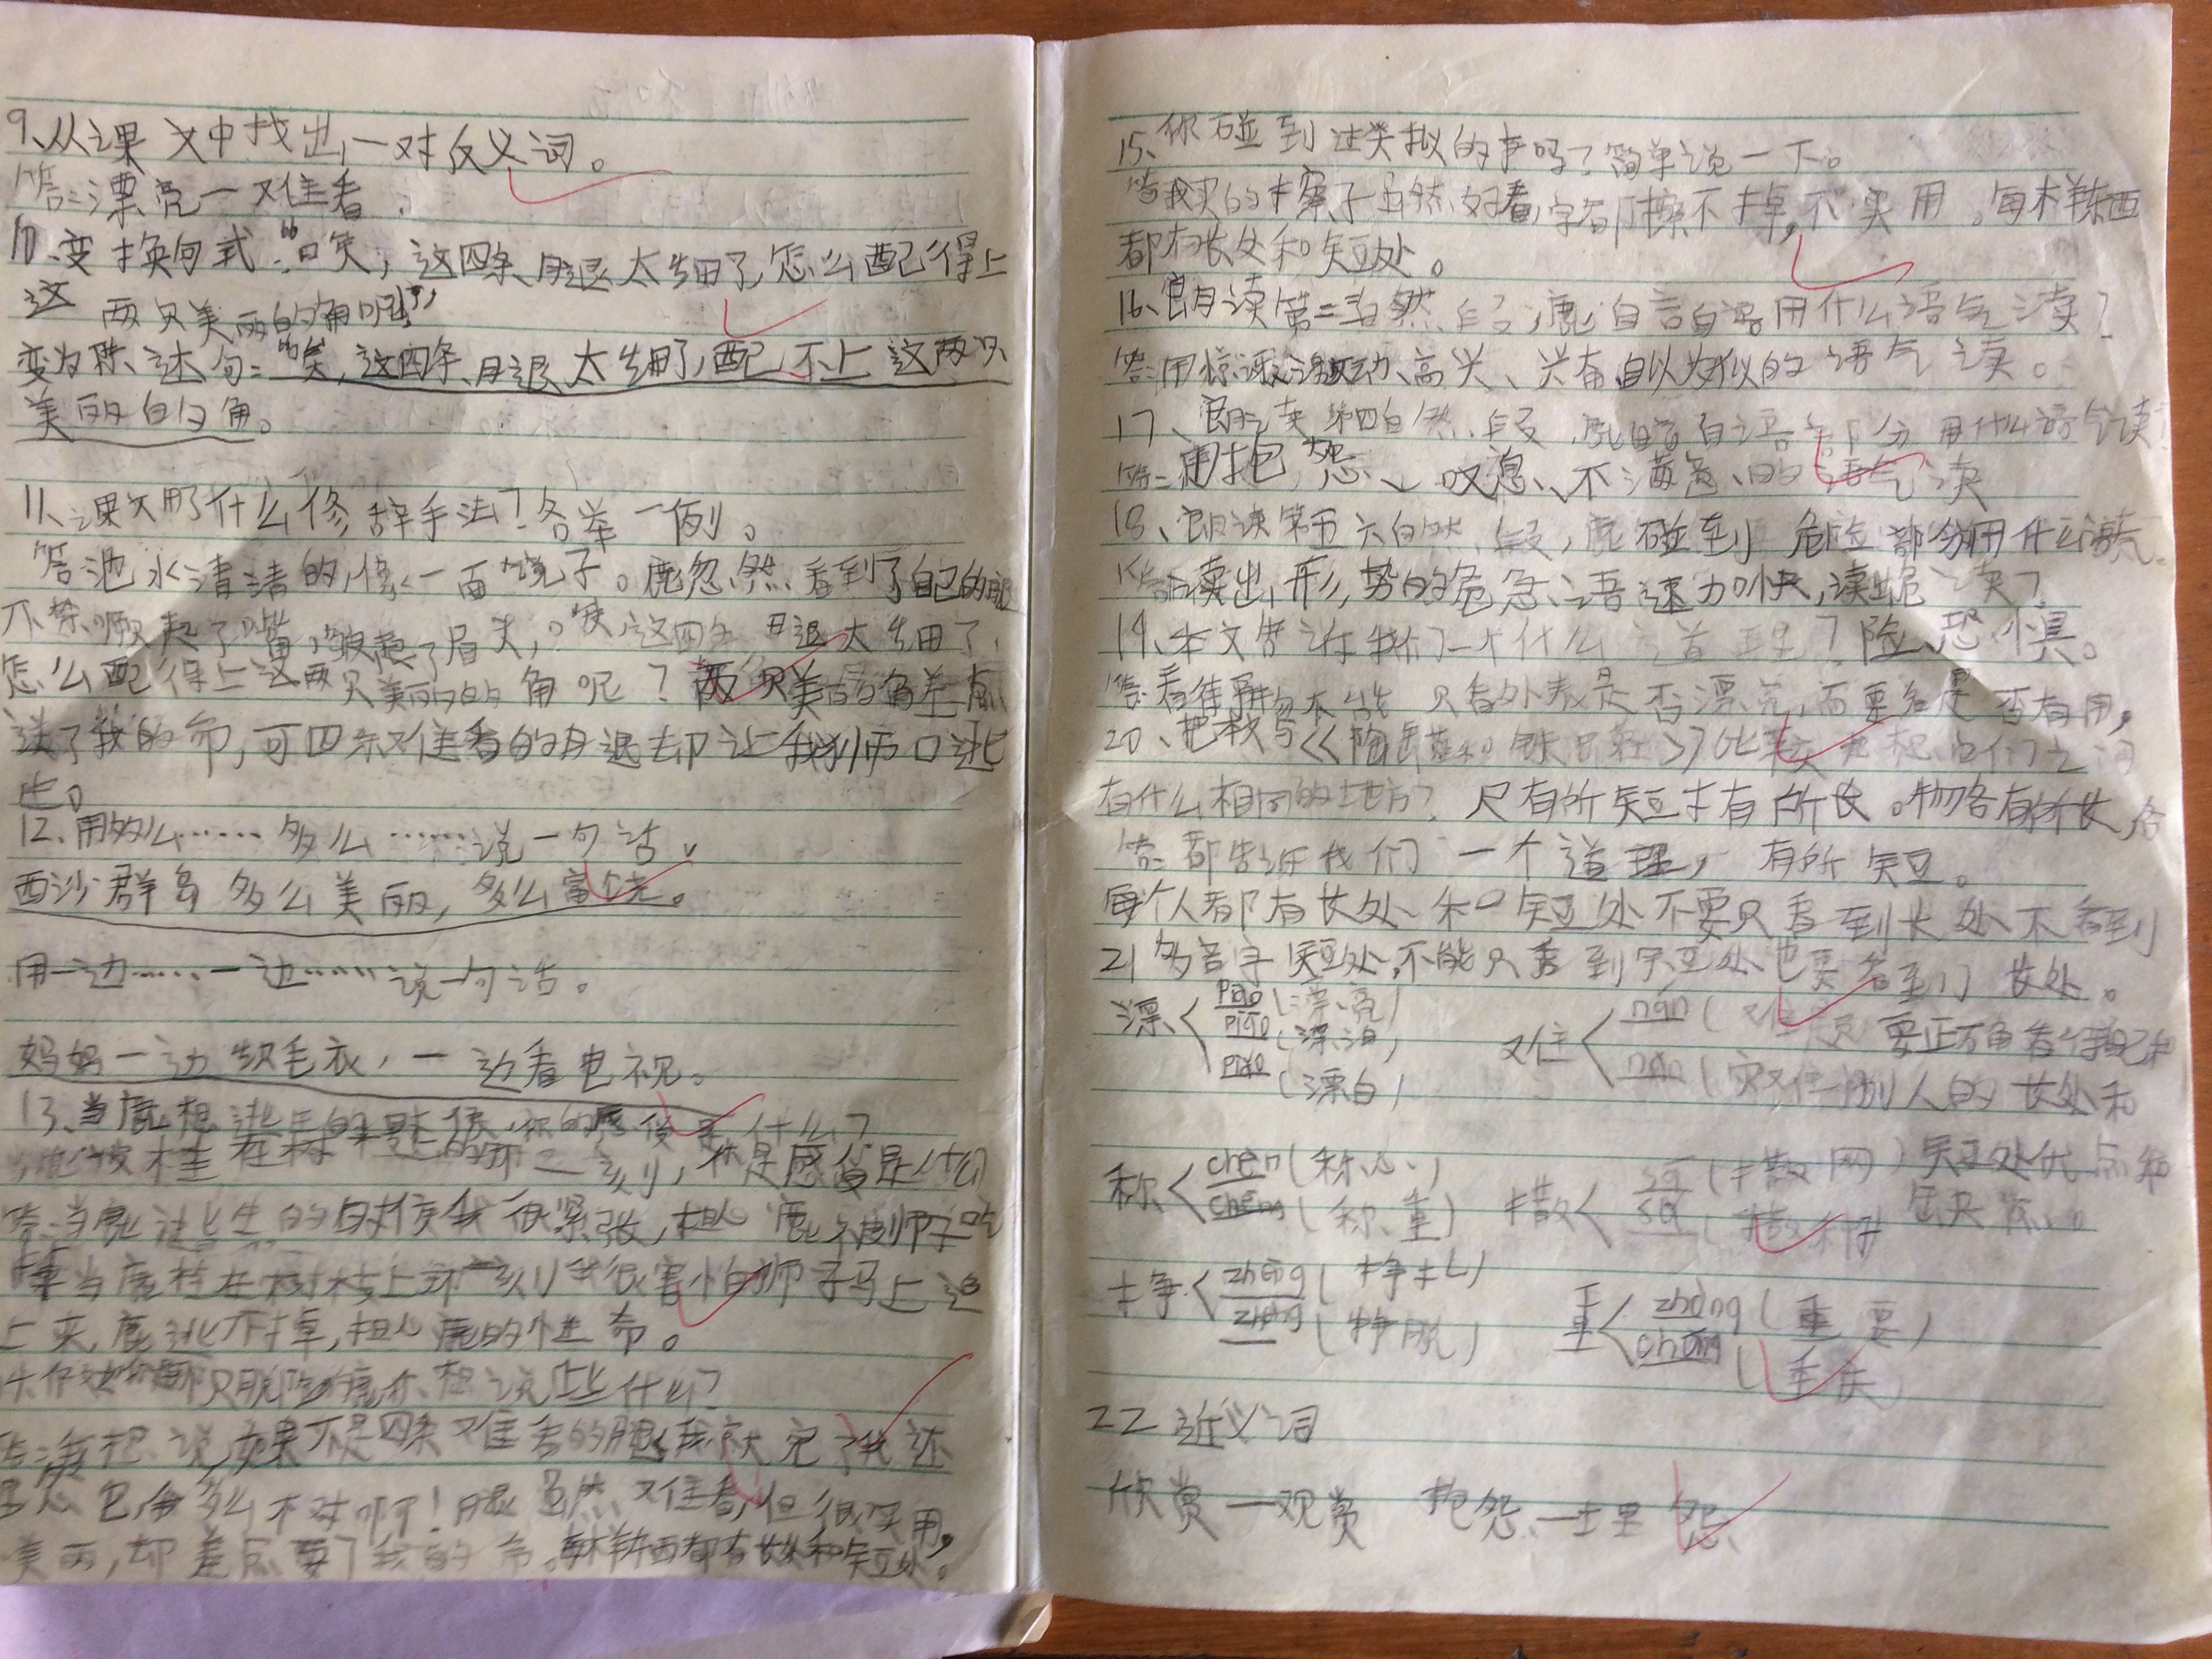 9、从课文中找出一对反义词。
答:漂亮一难看
10、变换句式:“唉,这四条腿太细了,怎么配得上
这两只美丽的角呢?”
变为陈述句:“唉,这四条腿太细了,配不上这两只
美丽的角。
11、课文用了什么修辞手法?各举一例。
答池水清清的,像一面镜子。鹿忽然看到了自己的腿
不禁噘起了嘴,皱起了眉头,“唉,这四条腿太细了,
怎么配得上这两只美丽的的角呢?两只美的角差点
送了我的命,可四条难看的腿却让我狮口逃
生。
12、用多么……多么……说一句话。
西沙群岛多么美丽,多么富饶。
用一边……一边……说一句话。
妈妈一边织毛衣,一边看电视。
13、当鹿想逃生的时候,你的感受是什么?
当鹿被挂在树枝上的那一刻,你是感受是什么
答:当鹿逃生的时候我很紧张,担心鹿被狮子吃
掉当鹿挂在树枝上那一刻我很害怕狮子马上追
上来,鹿逃不掉,担心鹿的性命。
只脱险的鹿你想说些什么?
想说,如果不是四条难看的腿,我就完了我还
多么不对啊!腿虽然难看,但很实用,
美丽,却差点要了我的命。每样东西都有长处和短处。
15、你碰到过类拟的事吗?简单说一下。
答我买的擦子虽然好看,字却擦不掉,不实用。每样东西
都有长处和短处。
16、朗读第二自然段,鹿自言自语用什么语气读?
答:用惊讶、激动、高兴、兴奋、自以为拟的语气读。
17、朗读第四自然段,鹿自言自语部分用什么语气读?
答:用抱怨、叹息、不满意、的语气读
18、朗读第五六自然段,鹿碰到危险部分用什么语气
答:读出形势的危急、语速加快,读出危读?
19、本文告诉我们一个什么道理?险、恐惧。
答:看待事物不能只看外表是否漂亮,而要看是否有用,
20、把本文与《陶罐和铁罐》比较想想它们之间
有什么相同的地方?尺有所短寸有所长。物各有所长,各
答:都告诉我们一个道理,有所短。
每个人都有长处和短处不要只看到长处不看到
21多音字短处,不能只看到短处也要看到长处。
漂 piào(漂亮)
piāo(漂泊)
piǎo(漂白)
难 nán(难 要正确看待自己和
nàn(灾难)别人的长处和
称 chèn(称心)撒 sā(撒网)短处优点和
chēng(称重) sǎ(撒种)缺点。
挣 zhēng(挣扎)重 zhòng(重要)
zhèng(挣脱) chóng(重庆)
22近义词
欣赏一观赏 抱怨一埋怨